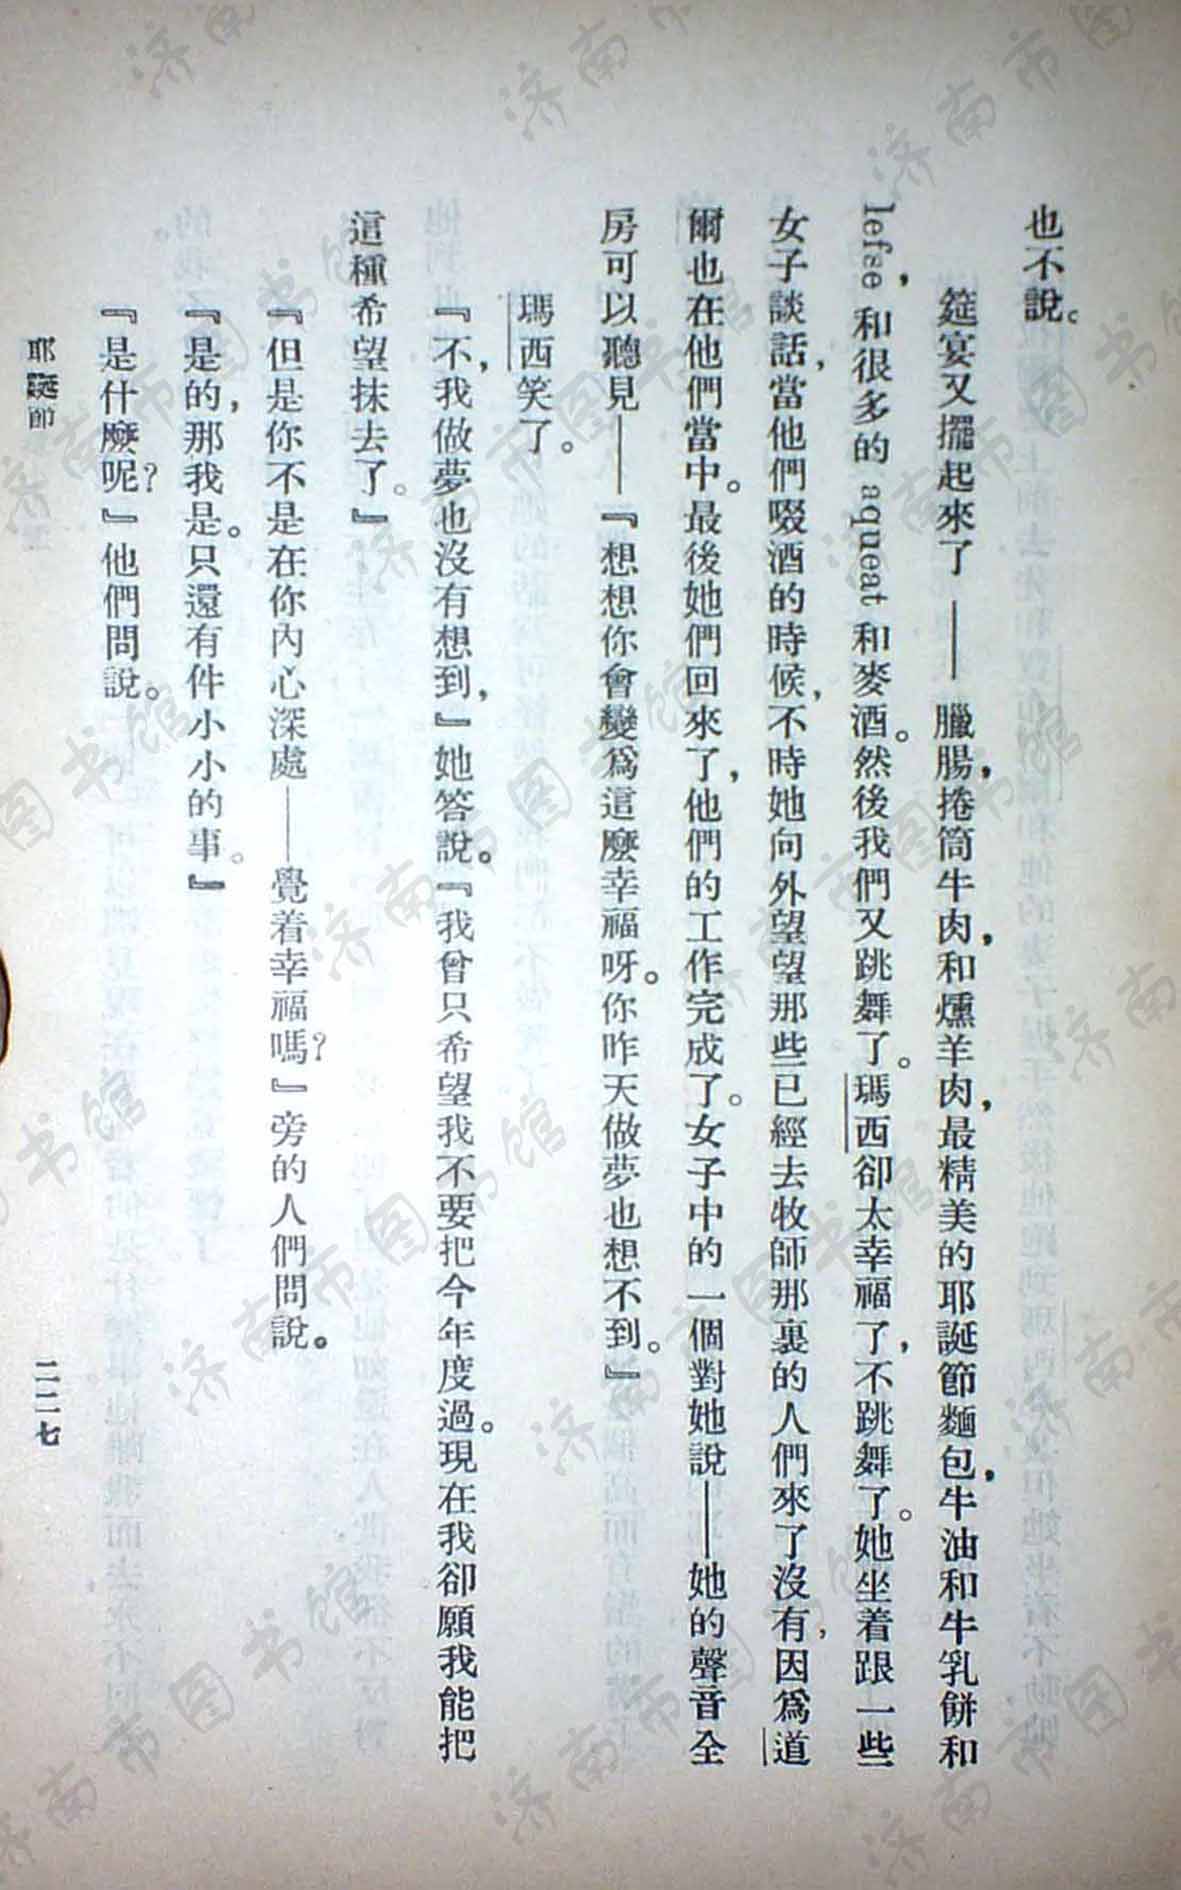 也不說。
筵宴又擺起來了——臘腸，捲筒牛肉，和燻羊肉，最精美的耶誕節麵包，牛油和牛乳餅和
lefse，和很多的 aqueat 和麥酒。然後我們又跳舞了。瑪西卻太幸福了，不跳舞了。她坐着跟一些
女子談話，當他們啜酒的時候，不時她向外望望那些已經去牧師那裏的人們來了沒有，因爲道
爾也在他們當中。最後她們回來了，他們的工作完成了。女子中的一個對她說——她的聲音全
房可以聽見——『想想你會變爲這麼幸福呀。你昨天做夢也想不到。』
瑪西笑了。
『不，我做夢也沒有想到，』她答說。『我曾只希望我不要把今年度過。現在我卻願我能把
這種希望抹去了。』
『但是你不是在你內心深處——覺着幸福嗎？』旁的人們問說。
『是的，那我是。只還有件小小的事。』
『是什麼呢？』他們問說。
耶誕節
二二七
济南市图书馆